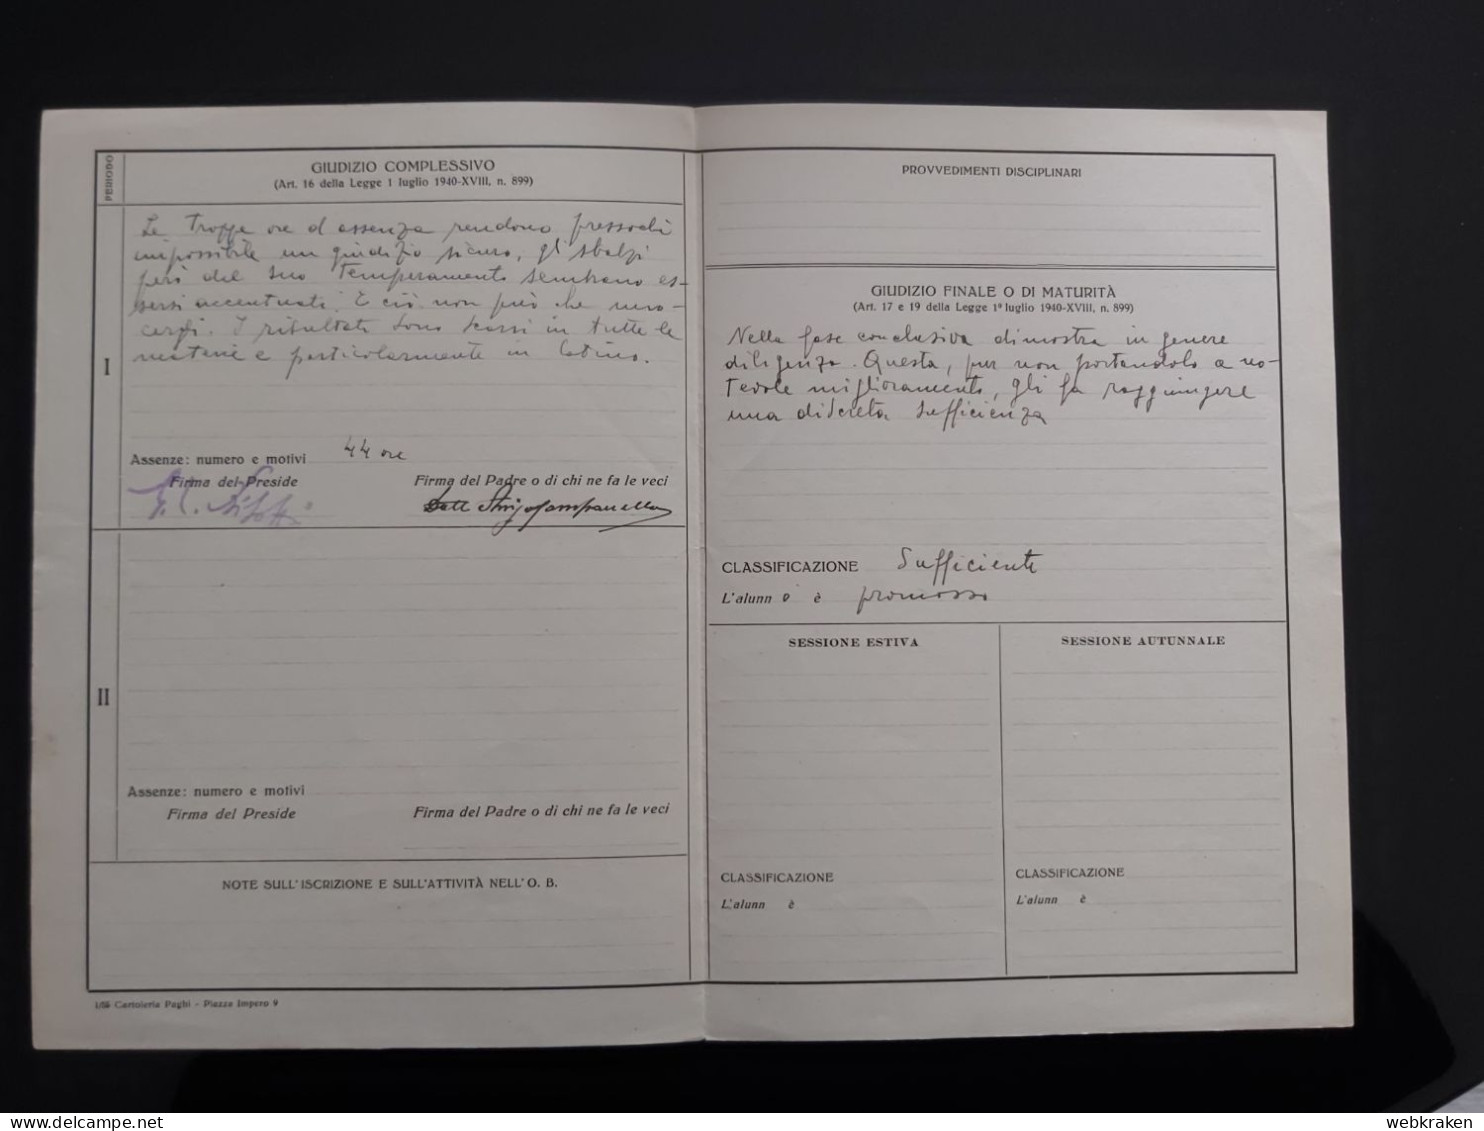 PERIODO
GIUDIZIO COMPLESSIVO
(Art. 16 della Legge 1 luglio 1940-XVIII, n. 899)
Le troppe ore d'assenza rendono pressochè
impossibile un giudizio sicuro, gl' sbalzi
però del suo temperamento sembrano es-
sersi accentuati. E ciò non può che nuo-
cergli. I risultati sono scarsi in tutte le
materie e particolarmente in latino.
I
Assenze: numero e motivi 44 ore
Firma del Preside Firma del Padre o di chi ne fa le veci
II
Assenze: numero e motivi
Firma del Preside Firma del Padre o di chi ne fa le veci
NOTE SULL'ISCRIZIONE E SULL'ATTIVITÀ NELL'O. B.
Cartoleria Paghi - Piazza Impero 9
PROVVEDIMENTI DISCIPLINARI
GIUDIZIO FINALE O DI MATURITÀ
(Art. 17 e 19 della Legge 1º luglio 1940-XVIII, n. 899)
Nella fase conclusiva dimostra in genere
diligenza. Questa, pur non portandolo a no-
tevole miglioramento, gli fa raggiungere
una discreta sufficienza
CLASSIFICAZIONE Sufficiente
L'alunn o è promosso
SESSIONE ESTIVA
CLASSIFICAZIONE
L'alunn è
SESSIONE AUTUNNALE
CLASSIFICAZIONE
L'alunn è
webkraken